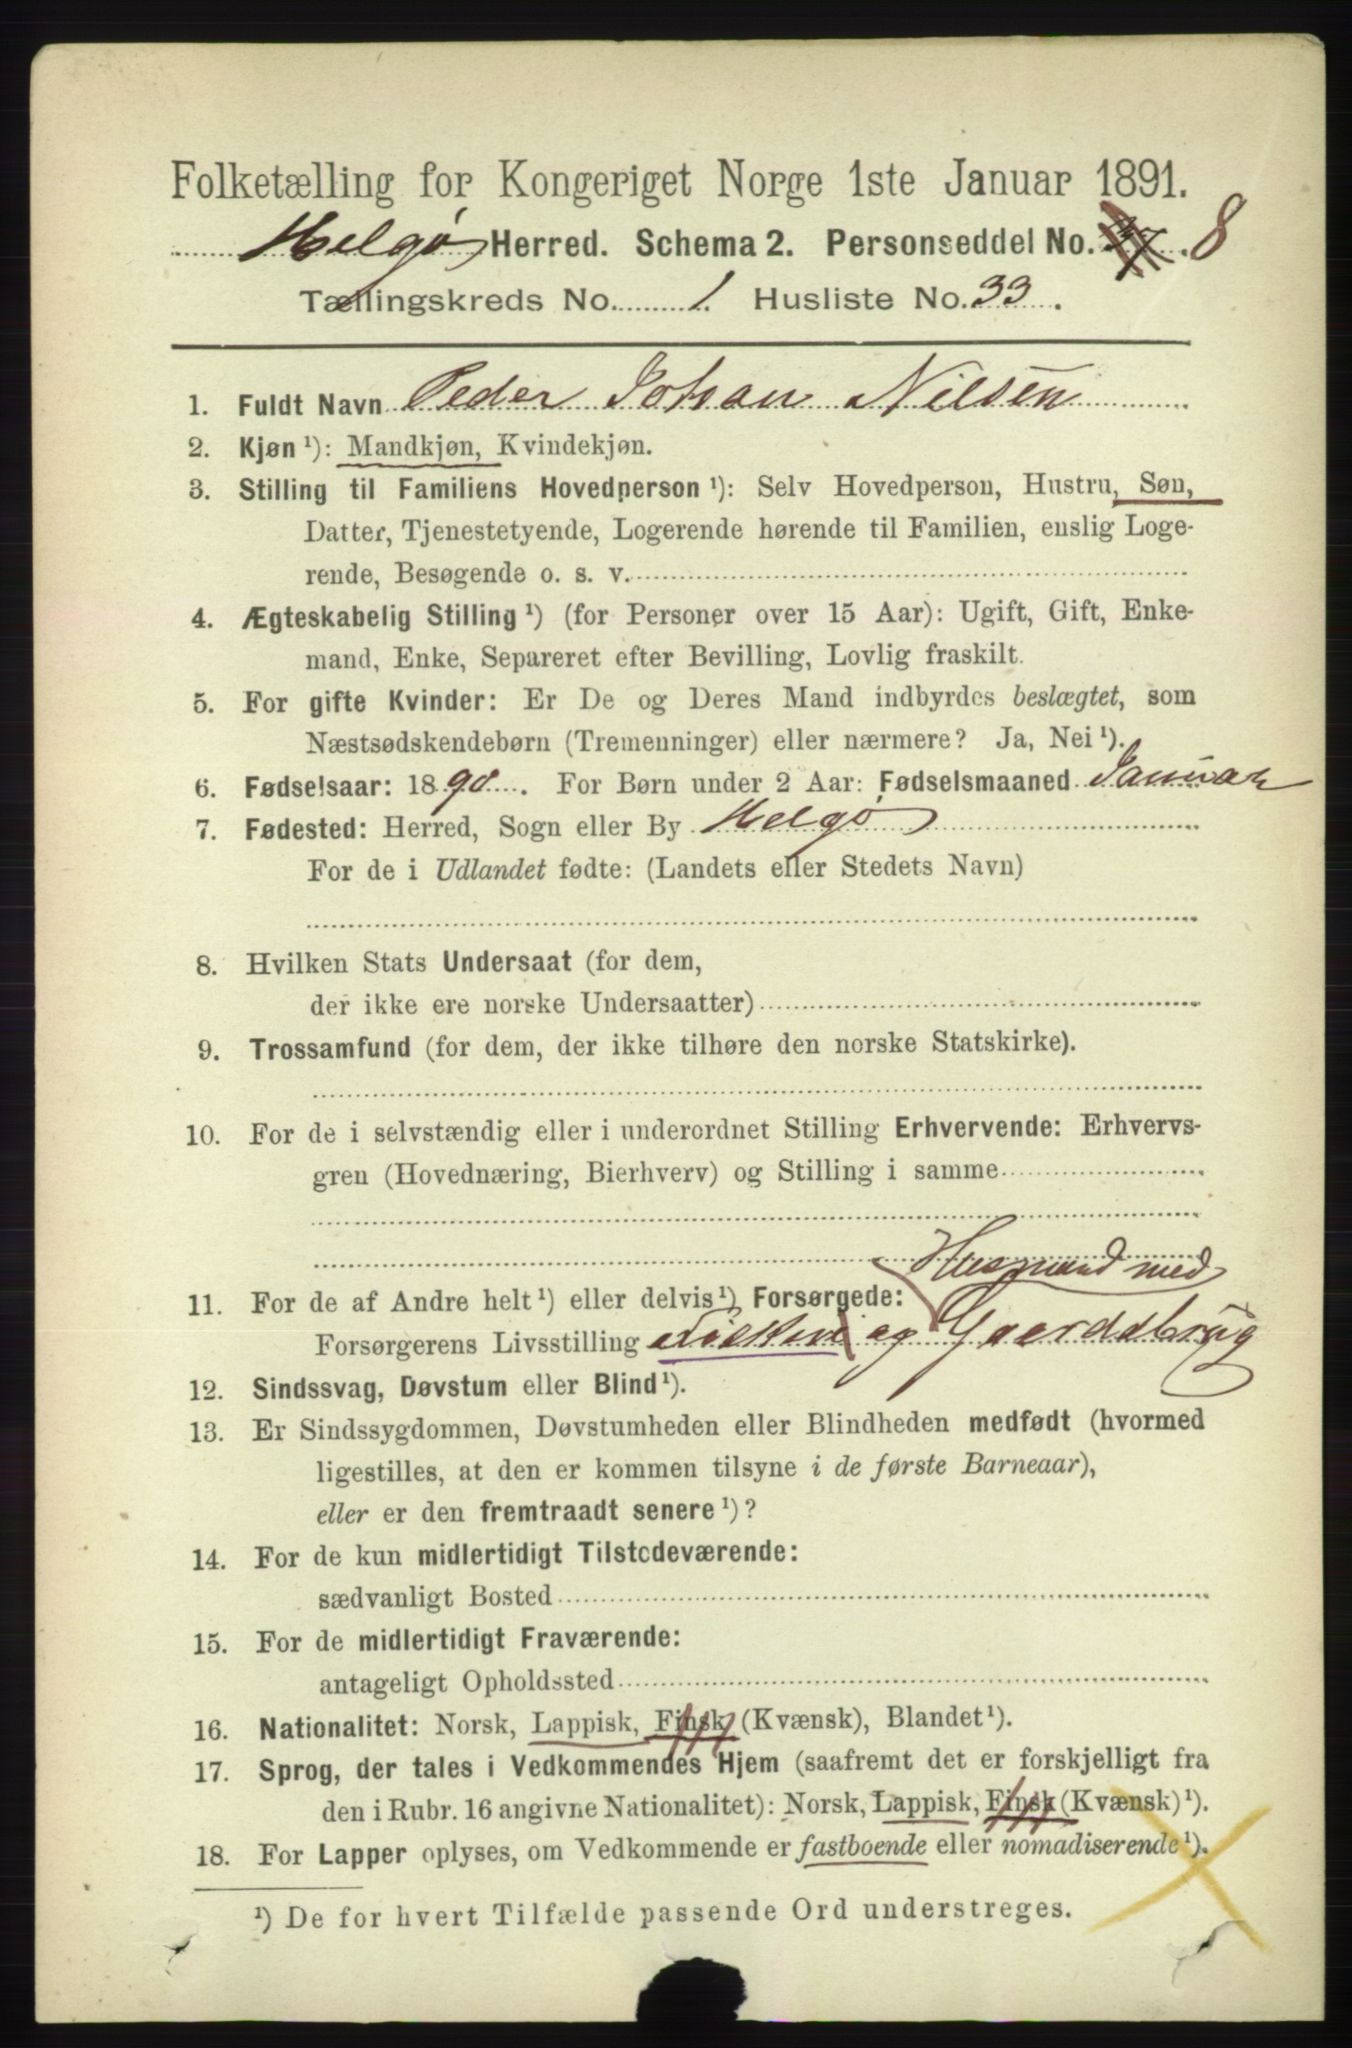 Folketælling for Kongeriget Norge 1ste Januar 1891.
Helgø Herred. Schema 2. Personseddel No. 8
Tællingskreds No. 1. Husliste No. 33.
1. Fuldt Navn Peder Johan Nilsen
2. Kjøn ¹): Mandkjøn, Kvindekjøn.
3. Stilling til Familiens Hovedperson ¹): Selv Hovedperson, Hustru, Søn,
Datter, Tjenestetyende, Logerende hørende til Familien, enslig Loge-
rende, Besøgende o. s. v.
4. Ægteskabelig Stilling ¹) (for Personer over 15 Aar): Ugift, Gift, Enke-
mand, Enke, Separeret efter Bevilling, Lovlig fraskilt.
5. For gifte Kvinder: Er De og Deres Mand indbyrdes beslægtet, som
Næstsødskendebørn (Tremenninger) eller nærmere? Ja, Nei ¹).
6. Fødselsaar: 1890. For Børn under 2 Aar: Fødselsmaaned Januar
7. Fødested: Herred, Sogn eller By Helgø
For de i Udlandet fødte: (Landets eller Stedets Navn)
8. Hvilken Stats Undersaat (for dem,
der ikke ere norske Undersaatter)
9. Trossamfund (for dem, der ikke tilhøre den norske Statskirke).
10. For de i selvstændig eller i underordnet Stilling Erhvervende: Erhvervs-
gren (Hovednæring, Bierhverv) og Stilling i samme
Husmand med
11. For de af Andre helt ¹) eller delvis ¹) Forsørgede:
Forsørgerens Livsstilling Fisker og Gaardsbrug
12. Sindssvag, Døvstum eller Blind ¹).
13. Er Sindssygdommen, Døvstumheden eller Blindheden medfødt (hvormed
ligestilles, at den er kommen tilsyne i de første Barneaar),
eller er den fremtraadt senere ¹)?
14. For de kun midlertidigt Tilstedeværende:
sædvanligt Bosted
15. For de midlertidigt Fraværende:
antageligt Opholdssted
16. Nationalitet: Norsk, Lappisk, Finsk (Kvænsk), Blandet ¹).
17. Sprog, der tales i Vedkommendes Hjem (saafremt det er forskjelligt fra
den i Rubr. 16 angivne Nationalitet): Norsk, Lappisk, Finsk (Kvænsk) ¹).
18. For Lapper oplyses, om Vedkommende er fastboende eller nomadiserende ¹).
¹) De for hvert Tilfælde passende Ord understreges.